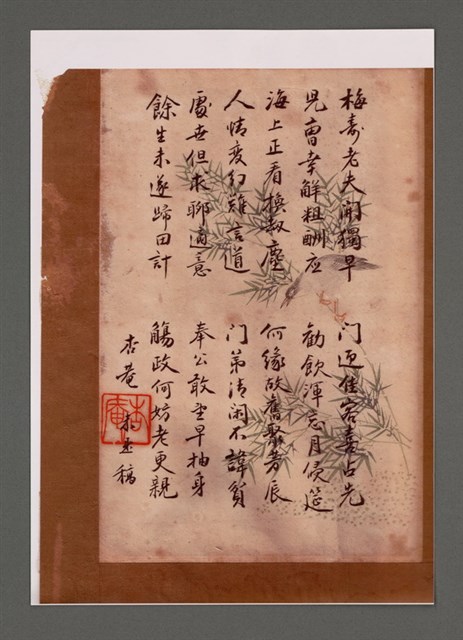 梅壽老夫開獨早 门迎佳客喜占先
児曹幸解粗酬应 勸飲渾忘月侵筵
海上正看揚劫塵 何緣故舊聚芳辰
人情变幻难言道 门第清闲不諱貧
處世但求聊適意 奉公敢望早抽身
餘生未遂歸田計 觴政何妨老更親
杏菴 未定稿